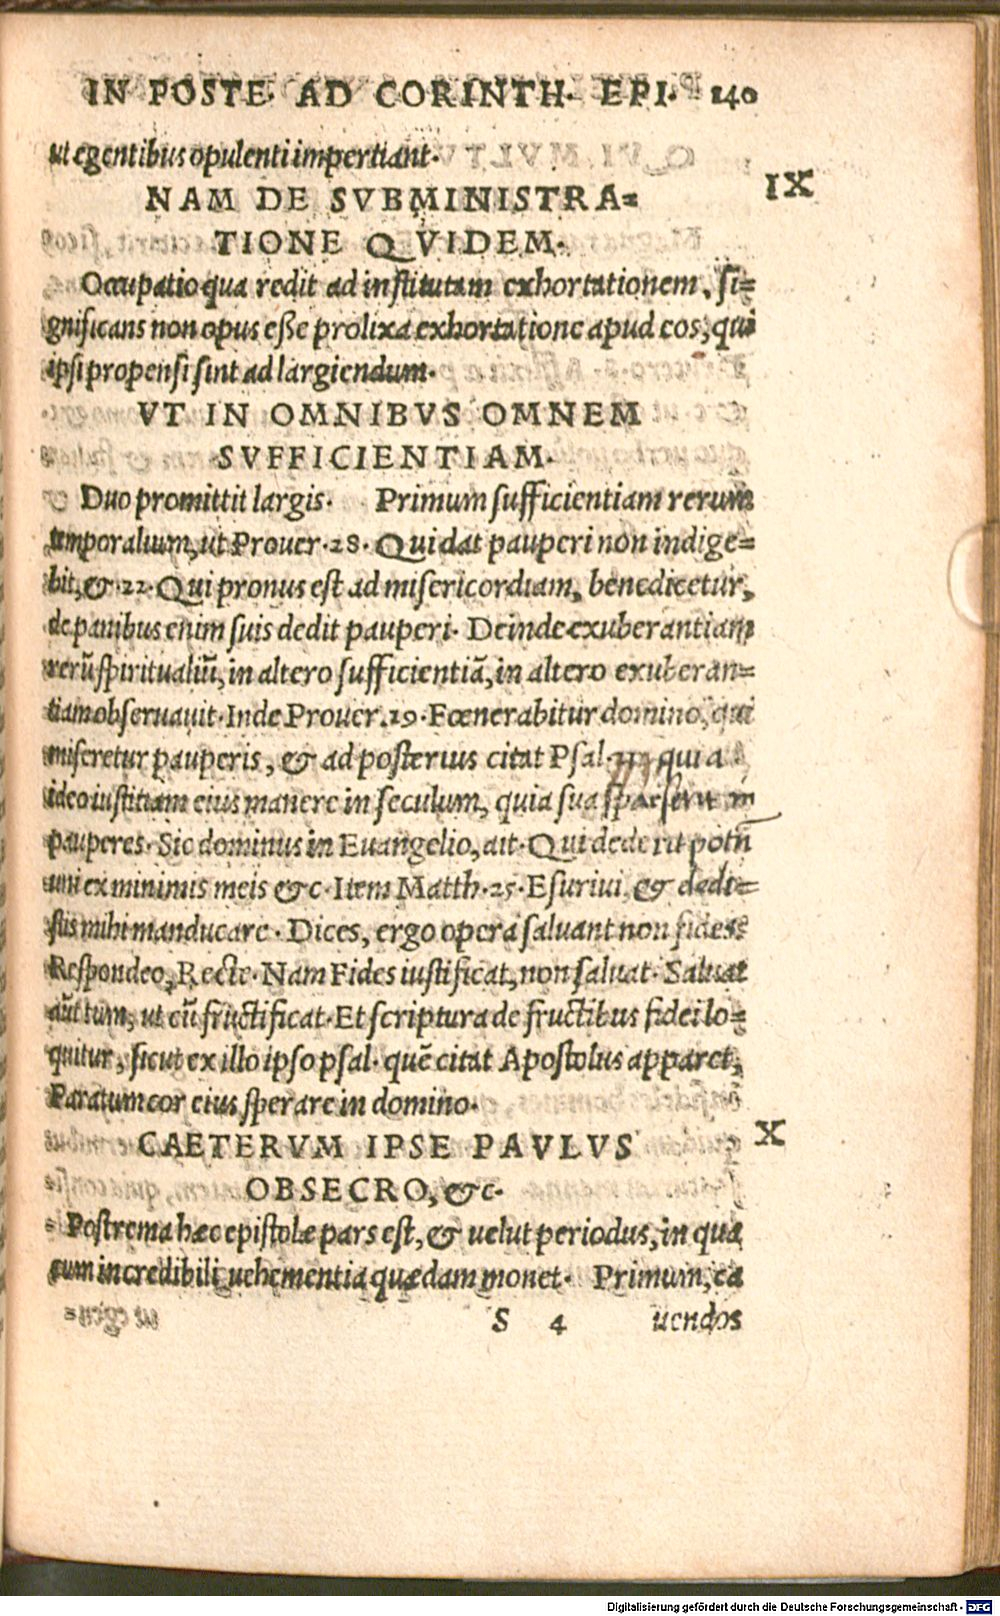 IN POSTE· AD CORINTH· EPI· 140
ut egentibus opulenti impertiant·
NAM DE SVBMINISTRA= IX
TIONE QVIDEM·
Occupatio qua redit ad institutam exhortationem, si=
gnificans non opus esse prolixa exhortatione apud eos, qui
ipsi propensi sint ad largiendum·
VT IN OMNIBVS OMNEM
SVFFICIENTIAM·
Duo promittit largis· Primum sufficientiam rerum
temporalium, ut Prouer·28· Qui dat pauperi non indige=
bit, &·22· Qui pronus est ad misericordiam, benedicetur,
de panibus enim suis dedit pauperi· Deinde exuberantiam
rerū spiritualiū, in altero sufficientiā, in altero exuberan=
tiam obseruauit· Inde Prouer·19· Fœnerabitur domino, qui
miseretur pauperis, & ad posterius citat Psal· quia
ideo iustitiam eius manere in seculum, quia sua sparserit in
pauperes· Sic dominus in Euangelio, ait· Qui dederit potū
uni ex minimis meis &c· Item Matth·25· Esuriui & dedi=
stis mihi manducare· Dices, ergo opera saluant non fides
Respondeo, Recte· Nam Fides iustificat, non saluat· Saluat
aūt tum, ut cū fructificat· Et scriptura de fructibus fidei lo=
quitur, sicut ex illo ipso psal· quē citat Apostolus apparet,
Paratum cor eius sperare in domino·
CAETERVM IPSE PAVLVS X
OBSECRO, &c·
Postrema hæc epistolæ pars est, & uelut periodus, in qua
cum incredibili uehementia quædam monet· Primum, ca
S 4 uendos
Digitalisierung gefördert durch die Deutsche Forschungsgemeinschaft - DFG